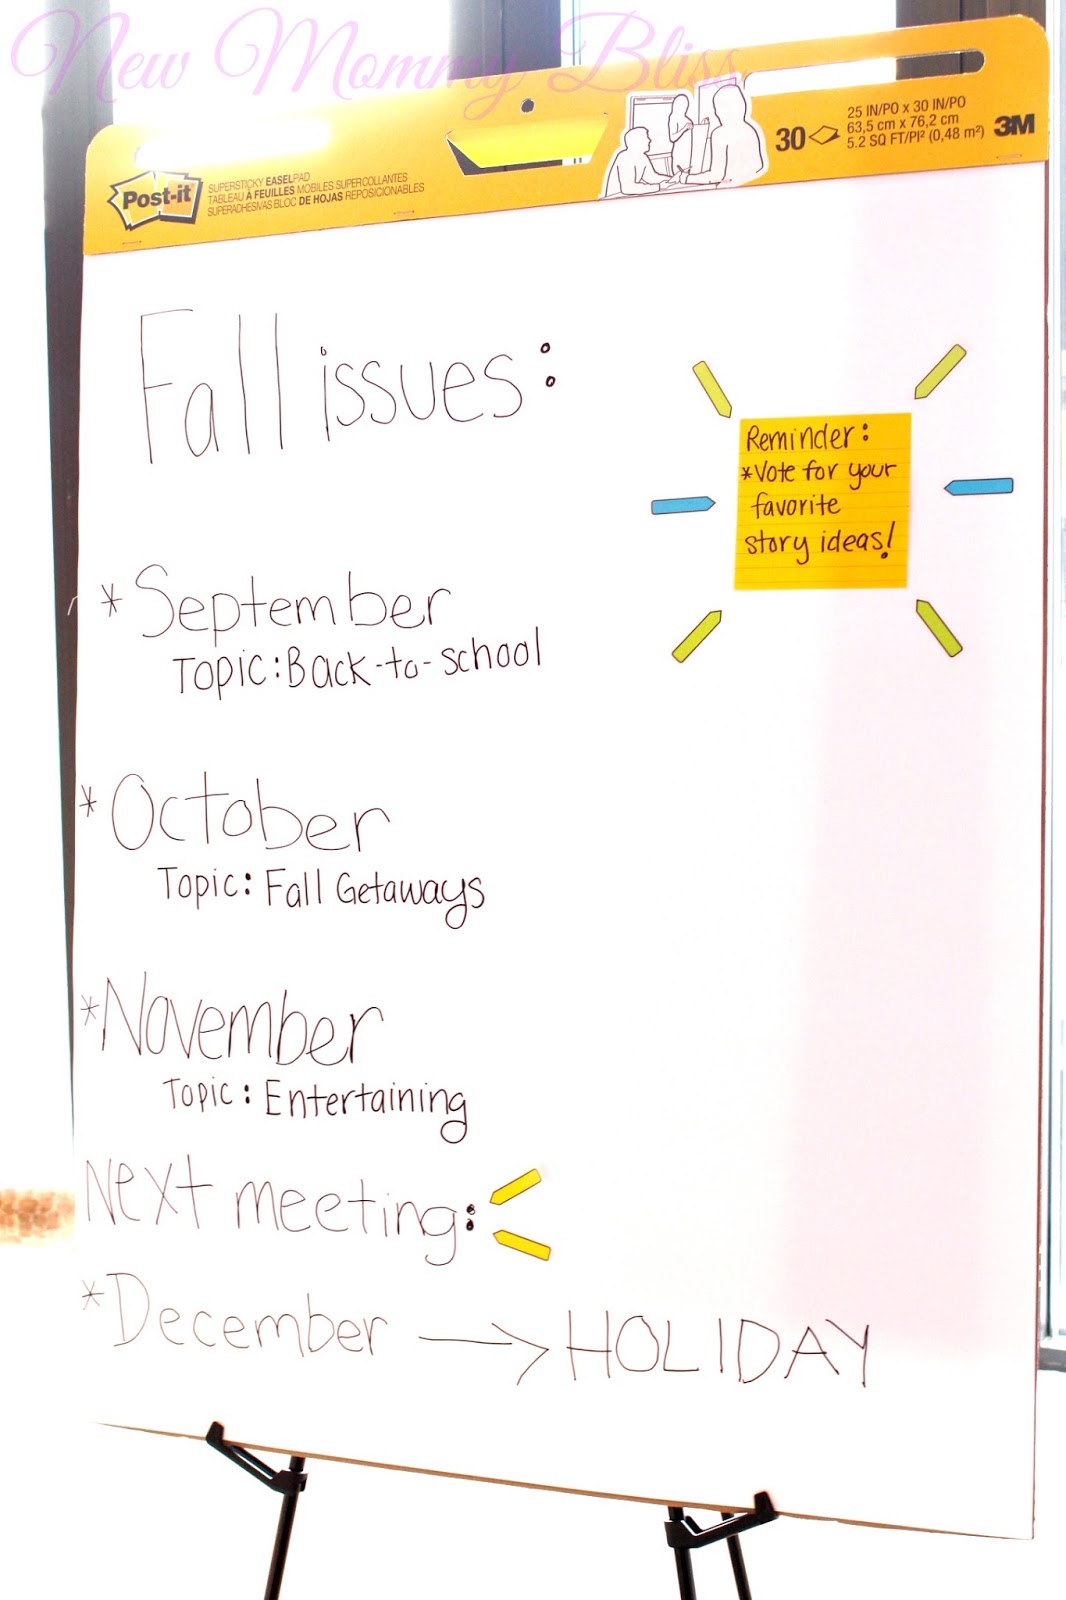 New Mommy Bliss
Post-it
SUPERSTICKY EASELPAD
TABLEAU À FEUILLES MOBILES SUPERCOLLANTES
SUPERADHESIVAS BLOC DE HOJAS REPOSICIONABLES
30
25 IN/PO x 30 IN/PO
63,5 cm x 76,2 cm
5.2 SQ FT/PI² (0,48 m²)
3M
Fall issues:
Reminder:
*Vote for your
favorite
story ideas!
*September
Topic: Back-to-school
*October
Topic: Fall Getaways
*November
Topic: Entertaining
Next meeting:
*December → HOLIDAY